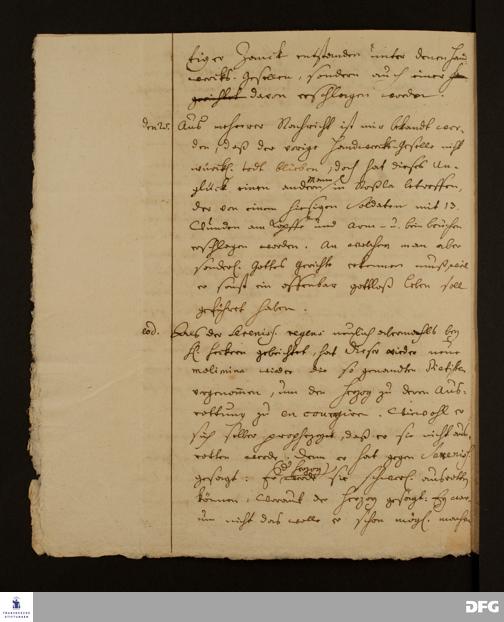 tziger Zanck entstanden unter denen Hand
wercks-Gesellen, sondern auch einer
davon erschlagen worden.
den 25. Aus mehrerer Nachricht ist mir bekandt wor-
den, daß der vorige Handwercks-Geselle nicht
würckl. todt blieben, doch hat dieses Un-
glück einen andern Mann in Roßla betroffen,
der von einem hiesigen Soldaten mit 13.
Wunden am Kopffe und Arm- u. beinbrüchen
erschlagen worden. An welchem man aber
sonderl. Gottes gerichte erkennen muß, weil
er sonst ein offenbar gottloß leben soll
geführet haben.
eod. Als der Sereniss. regens neulich abermahls bey
H. gebeichtet, hat dieser wieder neue
molimina wieder die so genandten Pietisten
vorgenommen, um den Herzog zu deren Aus-
rottung zu encouragiren. Wiewohl er
sich selber prophezeyet, daß er sie nicht aus-
rotten werde: Denn er hat gegen Sereniss.
gesagt: der Herzog werde sie schwerl. ausrotten
können, Worauf der Herzog gesagt: Ey war-
um nicht das wolle er schon mögl. machen
FRANCKESCHE
STIFTUNGEN
DFG